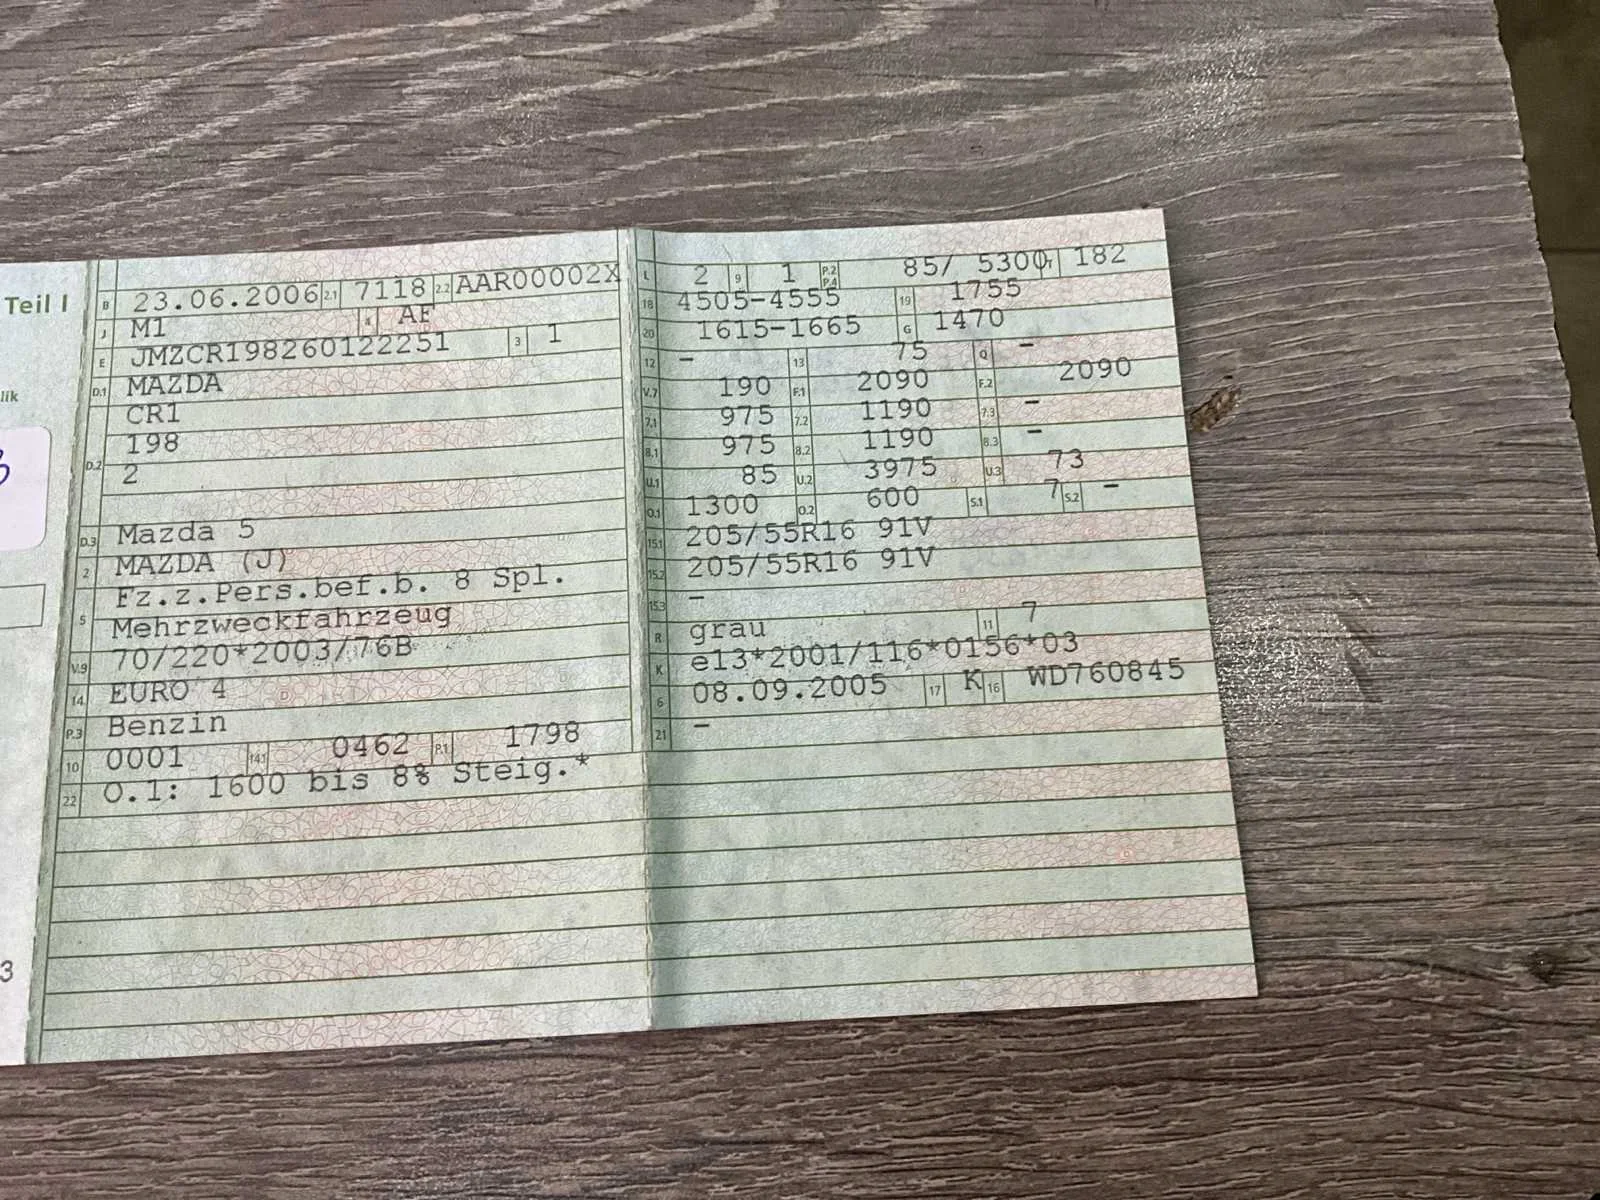 Teil I
lik
3
B 23.06.2006 2.1 7118 2.2 AAR00002X
J M1 4 AF
E JMZCR198260122251 3 1
D.1 MAZDA
CR1
198
D.2 2
D.3 Mazda 5
2 MAZDA (J)
Fz.z.Pers.bef.b. 8 Spl.
5 Mehrzweckfahrzeug
V.9 70/220*2003/76B
14 EURO 4
P.3 Benzin
10 0001 14.1 0462 P.1 1798
22 O.1: 1600 bis 8% Steig.*
L 2 9 1 P.2 P.4 85/ 5300 T 182
18 4505-4555 19 1755
20 1615-1665 G 1470
12 - 13 75 Q -
V.7 190 F.1 2090 F.2 2090
7.1 975 7.2 1190 7.3 -
8.1 975 8.2 1190 8.3 -
U.1 85 U.2 3975 U.3 73
O.1 1300 O.2 600 S.1 7 S.2 -
15.1 205/55R16 91V
15.2 205/55R16 91V
15.3 -
R grau 11 7
K e13*2001/116*0156*03
6 08.09.2005 17 K 16 WD760845
21 -